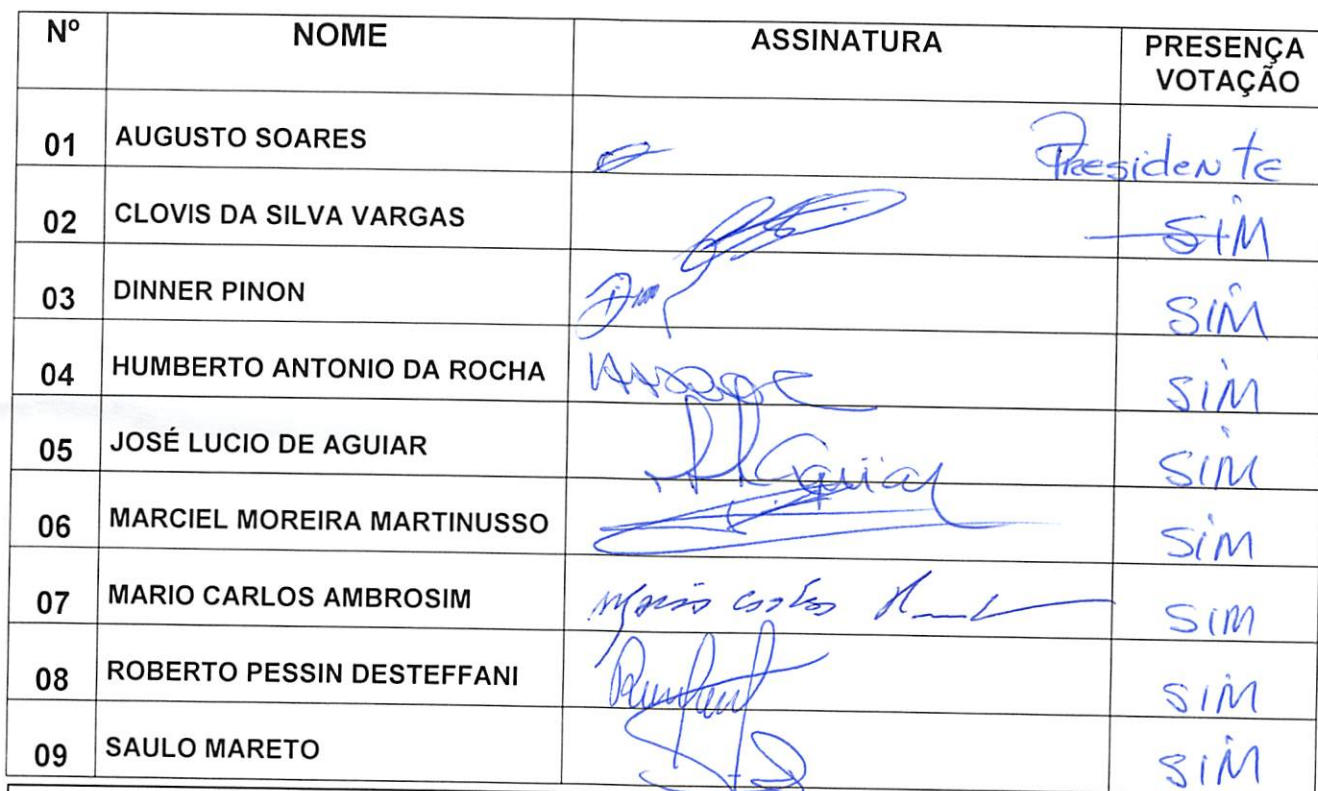 Nº NOME ASSINATURA PRESENÇA
VOTAÇÃO
01 AUGUSTO SOARES Presidente
02 CLOVIS DA SILVA VARGAS SIM
03 DINNER PINON SIM
04 HUMBERTO ANTONIO DA ROCHA SIM
05 JOSÉ LUCIO DE AGUIAR Aguiar SIM
06 MARCIEL MOREIRA MARTINUSSO SIM
07 MARIO CARLOS AMBROSIM SIM
08 ROBERTO PESSIN DESTEFFANI SIM
09 SAULO MARETO SIM